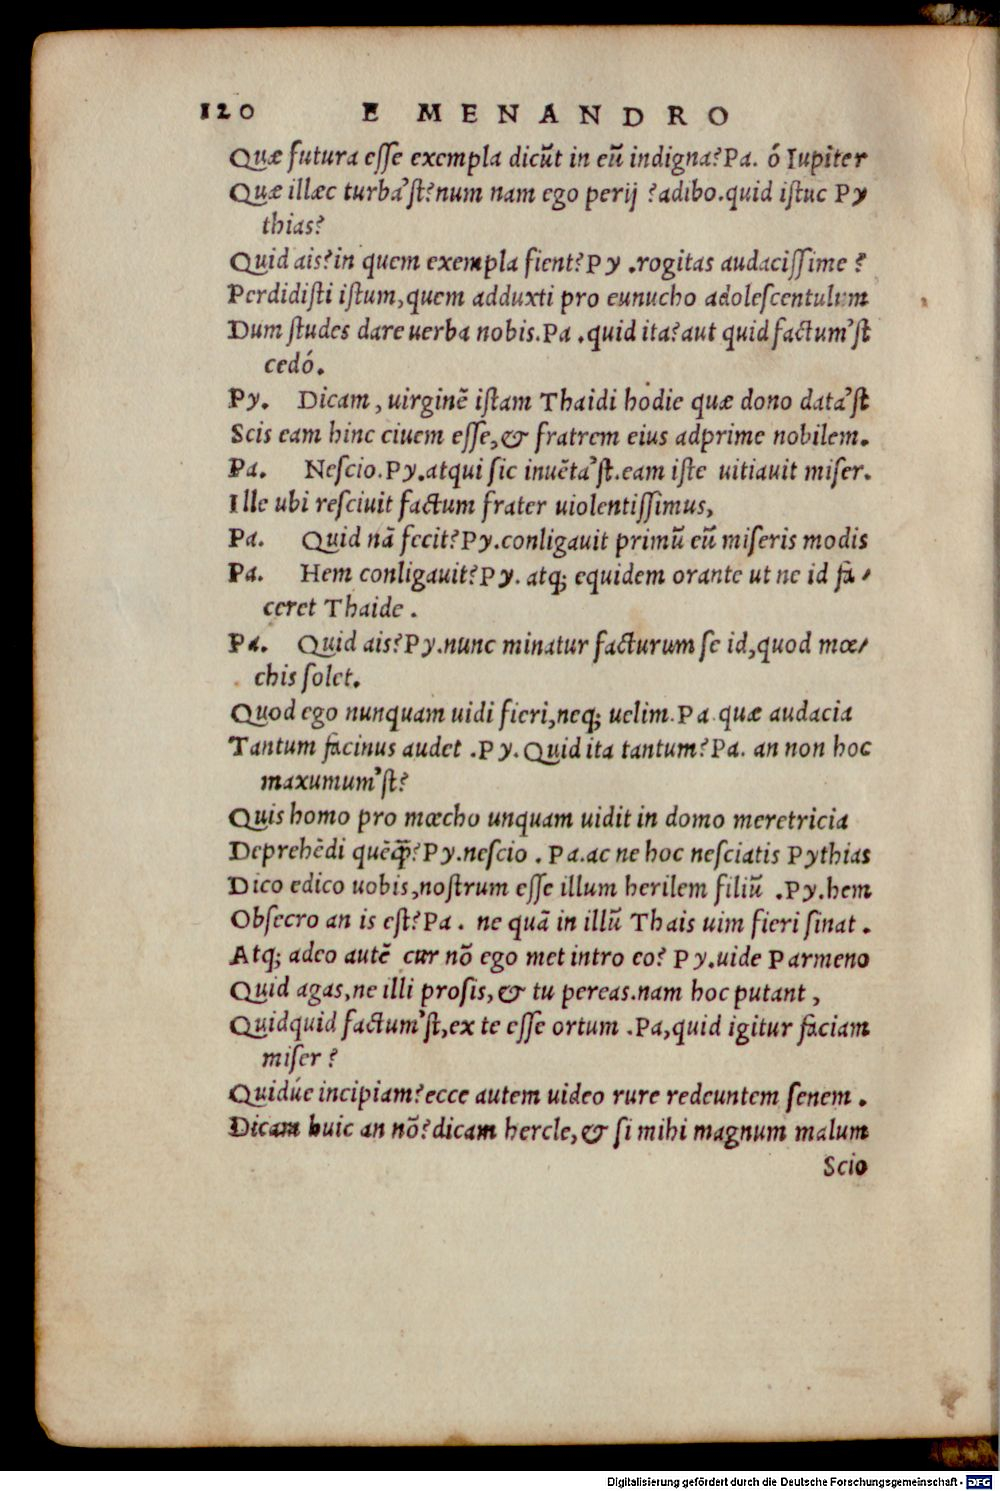 120 E MENANDRO
Quæ futura eſſe exempla dicũt in eũ indigna? Pa. ó Iupiter
Quæ illæc turba'ſt? num nam ego perij? adibo. quid iſtuc Py
thias?
Quid ais? in quem exempla fient? Py. rogitas audaciſſime?
Perdidiſti iſtum, quem adduxti pro eunucho adoleſcentulum
Dum ſtudes dare uerba nobis. Pa. quid ita? aut quid factum'ſt
cedó.
Py. Dicam, uirginẽ iſtam Thaidi hodie quæ dono data'ſt
Scis eam hinc ciuem eſſe, & fratrem eius adprime nobilem.
Pa. Neſcio. Py. atqui ſic inuẽta'ſt. eam iſte uitiauit miſer.
Ille ubi reſciuit factum frater uiolentiſſimus,
Pa. Quid nã fecit? Py. conligauit primũ eũ miſeris modis
Pa. Hem conligauit? Py. atq; equidem orante ut ne id fa-
ceret Thaide.
Pa. Quid ais? Py. nunc minatur facturum ſe id, quod mœ-
chis ſolet.
Quod ego nunquam uidi fieri, neq; uelim. Pa. quæ audacia
Tantum facinus audet. Py. Quid ita tantum? Pa. an non hoc
maxumum'ſt?
Quis homo pro mœcho unquam uidit in domo meretricia
Deprehẽdi quẽq̃? Py. neſcio. Pa. ac ne hoc neſciatis Pythias
Dico edico uobis, noſtrum eſſe illum herilem filiũ. Py. hem
Obſecro an is eſt? Pa. ne quã in illũ Thais uim fieri ſinat.
Atq; adeo autẽ cur nõ ego met intro eo? Py. uide Parmeno
Quid agas, ne illi proſis, & tu pereas. nam hoc putant,
Quidquid factum'ſt, ex te eſſe ortum. Pa, quid igitur faciam
miſer?
Quidúe incipiam? ecce autem uideo rure redeuntem ſenem.
Dicam huic an nõ? dicam hercle, & ſi mihi magnum malum
Scio
Digitalisierung gefördert durch die Deutsche Forschungsgemeinschaft - DFG